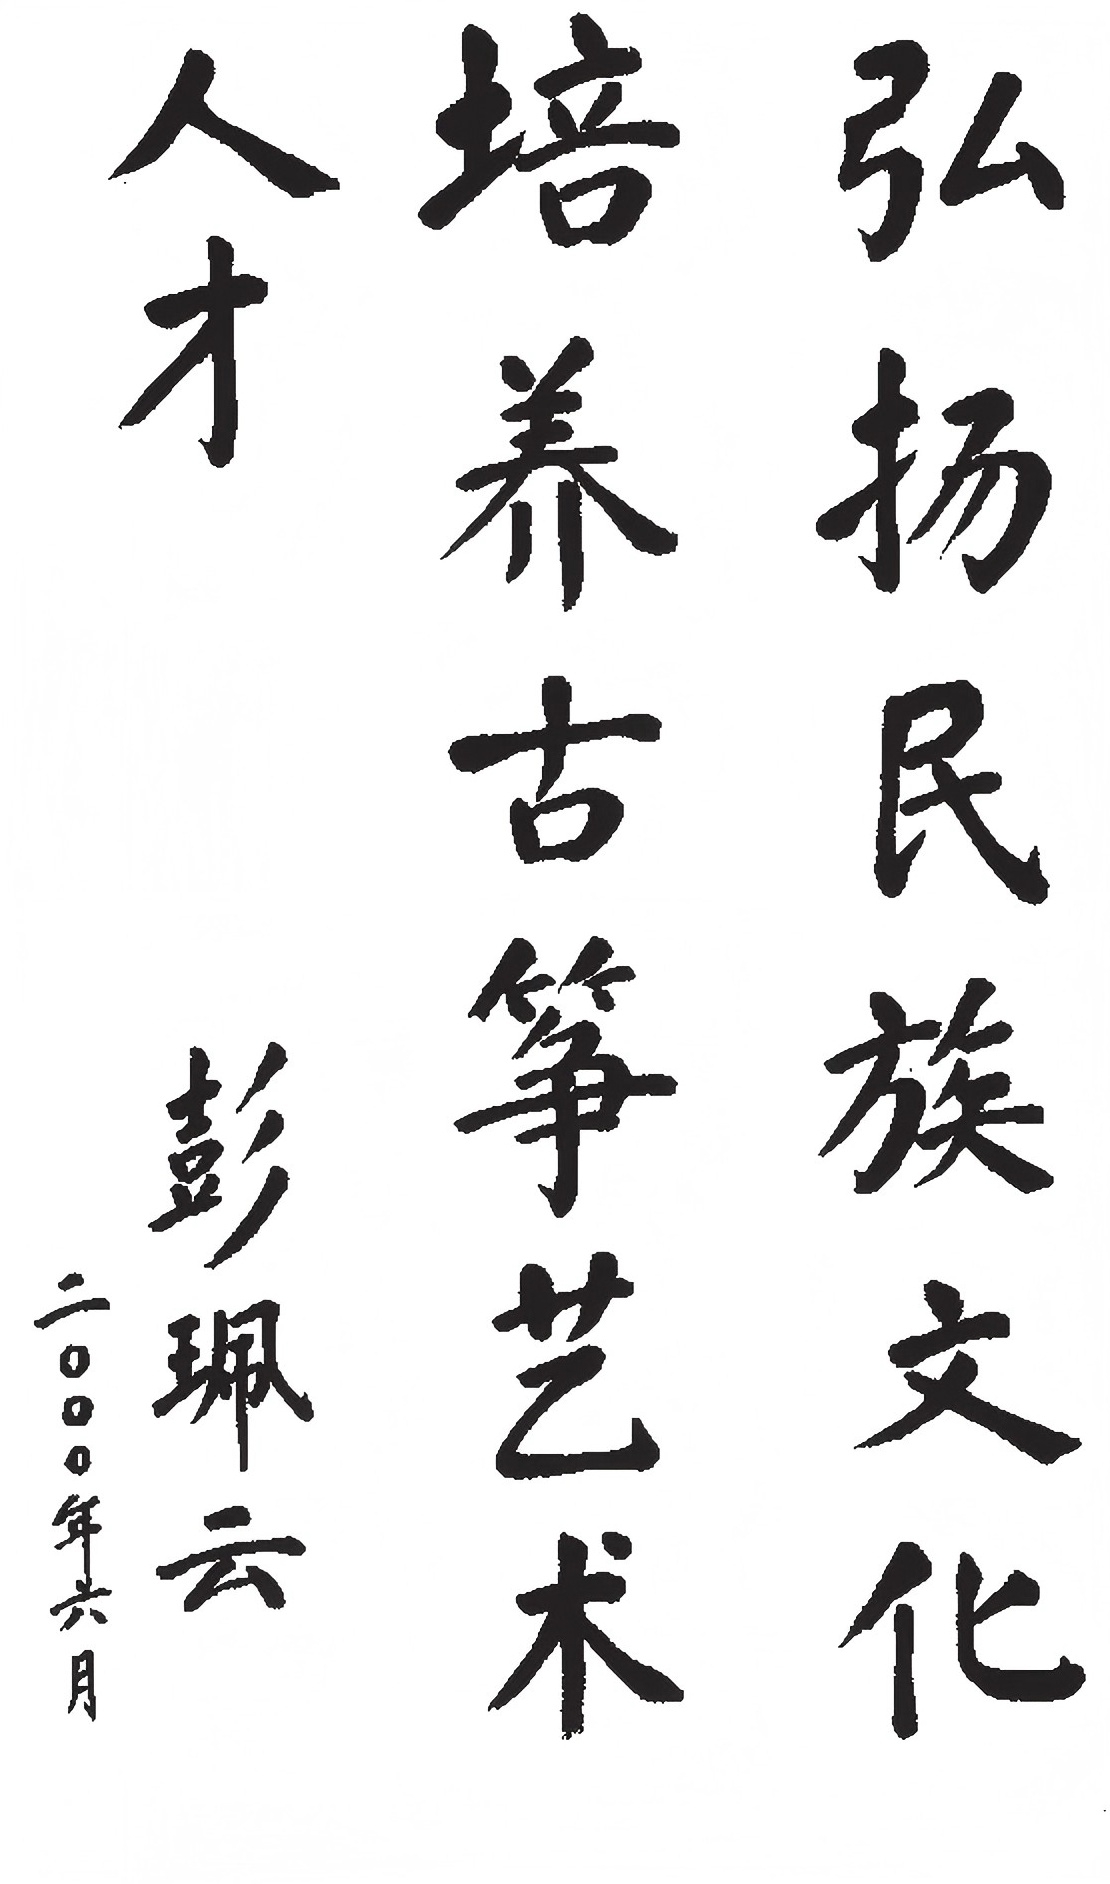 弘扬民族文化
培养古筝艺术
人才
彭珮云
二〇〇〇年六月